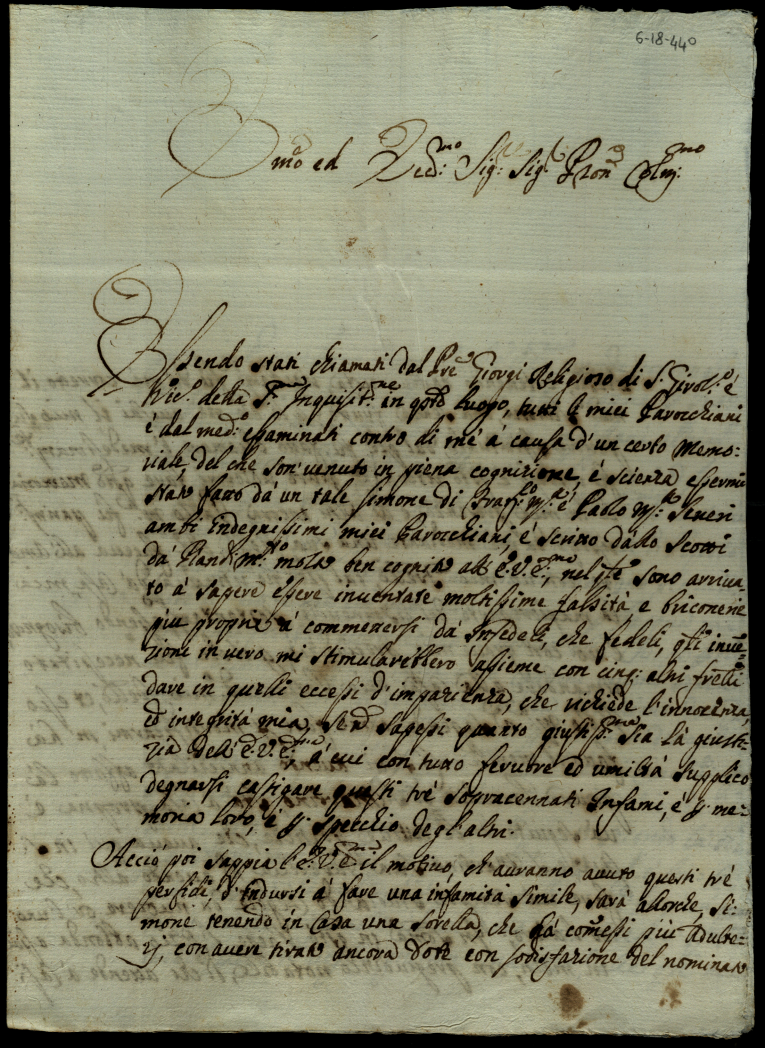 6-18-440
Emo ed Red:mo Sig:re Sig:re Pron:e Col:mo
Essendo stati chiamati dal Pre Giorgi Religioso di S. Girol:o é
Vic:o della S:ma Inquisit:ne in qsto luogo, tutti li miei Parocchiani
é dal med:o essaminati contro di mé á causa d'un certo Memo:
riale, del che son venuto in piena cognizione, é scienza essermi
stato fatto dá un tale Simone di é Paolo Seneri
ambi indegnissimi miei Parocchiani, é scritto dallo
dá molto ben cognito all'E.V.E:ma, nel qle sono arriva:
to á sapere essere inventate moltissime falsitá e briconerie
piú proprie á commettersi dá Infedeli, che fedeli, qsti inve
zioni in vero mi stimularebbero assieme con cinq: altri fretti
dare in quelli eccessi d'impazienza, che richiede l'innocenza,
ed integritá mia, se ñ sapessi quanto giustiss:ma sia lá giusti:
zia dell'E.V.E:ma, á cui con tutto fervore ed umiltá supplico
degnarsi castigare questi tré sopracennati Infami, é p me:
moria loro, é p specchio degl'altri.
Acció poi sappia l'E.V.E:ma il motivo, ch'auranno avuto questi tré
perfidi, d'indursi á fare una infamitá simile, sará allorche, Si:
mone tenendo in Casa una sorella, che há comessi piú Adulte:
rj, con avere tirato ancora Dote con sodisfazione del nominato